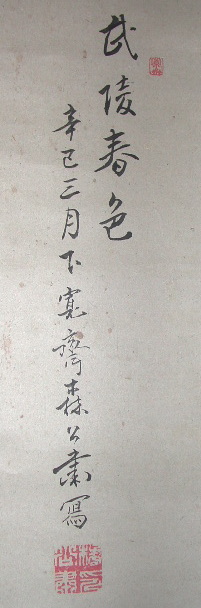 武陵春色
辛巳三月下寛齋森公肅寫